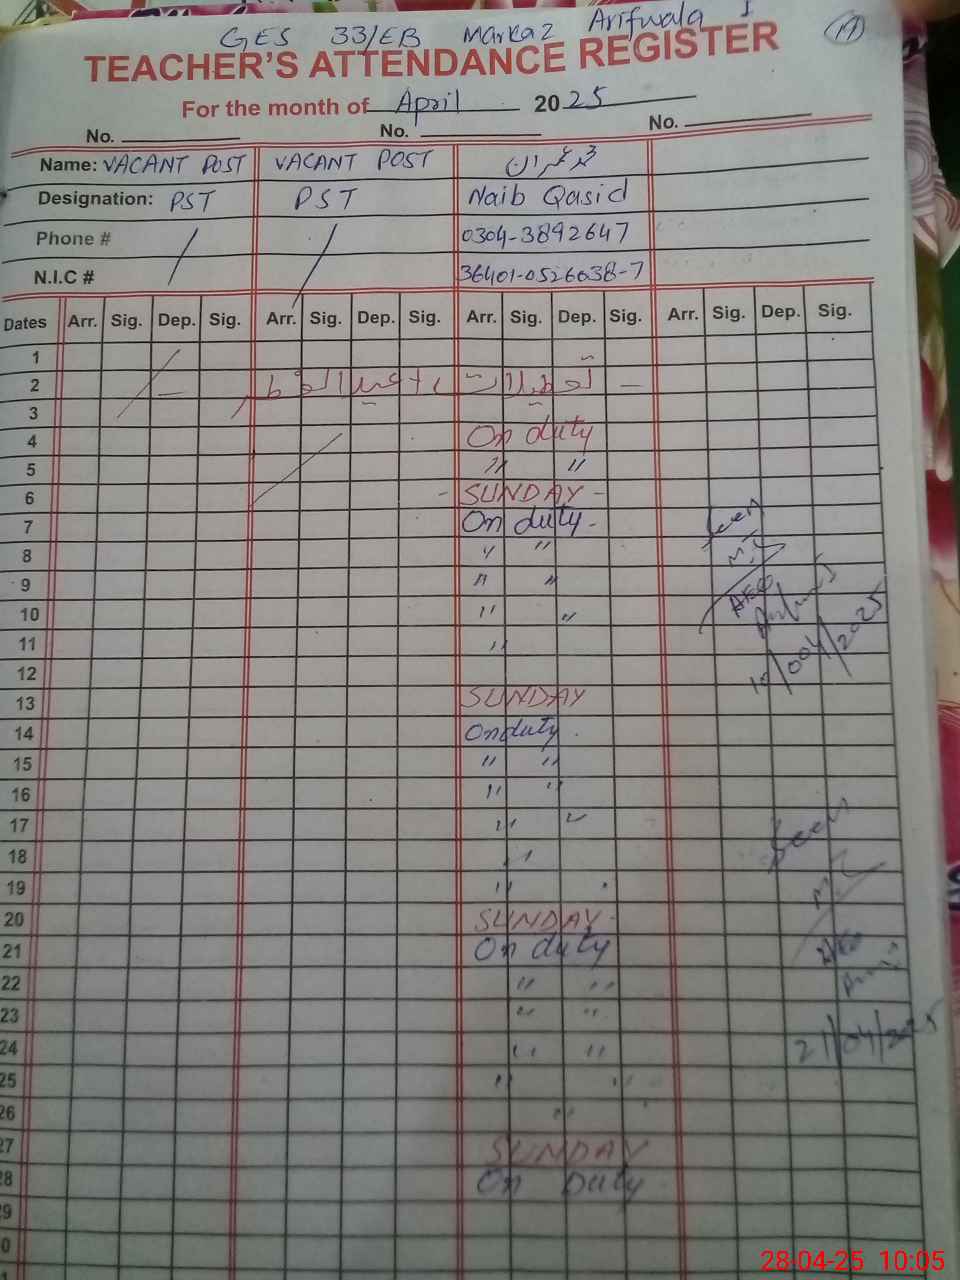 GES 33/EB Markaz Arifwala I
19
TEACHER'S ATTENDANCE REGISTER
For the month of April 2025
No. No. No.
Name: VACANT POST VACANT POST محمد عمران
Designation: PST PST Naib Qasid
Phone # 0304-3892647
N.I.C # 36401-0526038-7
Dates Arr. Sig. Dep. Sig. Arr. Sig. Dep. Sig. Arr. Sig. Dep. Sig. Arr. Sig. Dep. Sig.
1
2 تعطیلات عیدالفطر
3
4 On duty
5 〃 〃
6 - SUNDAY -
7 On duty - Seen
8 〃 〃
9 〃 〃 AEO
10 〃 〃
11 〃 10/004/2025
12
13 SUNDAY
14 On duty
15 〃 〃
16 〃 〃
17 〃 〃 Seen
18 〃
19 〃
20 SUNDAY -
21 On duty AEO
22 〃 〃
23 〃 〃
24 〃 〃 21/04/2025
25 〃 〃
26 〃
27 SUNDAY
28 On Duty
29
0
28-04-25 10:05